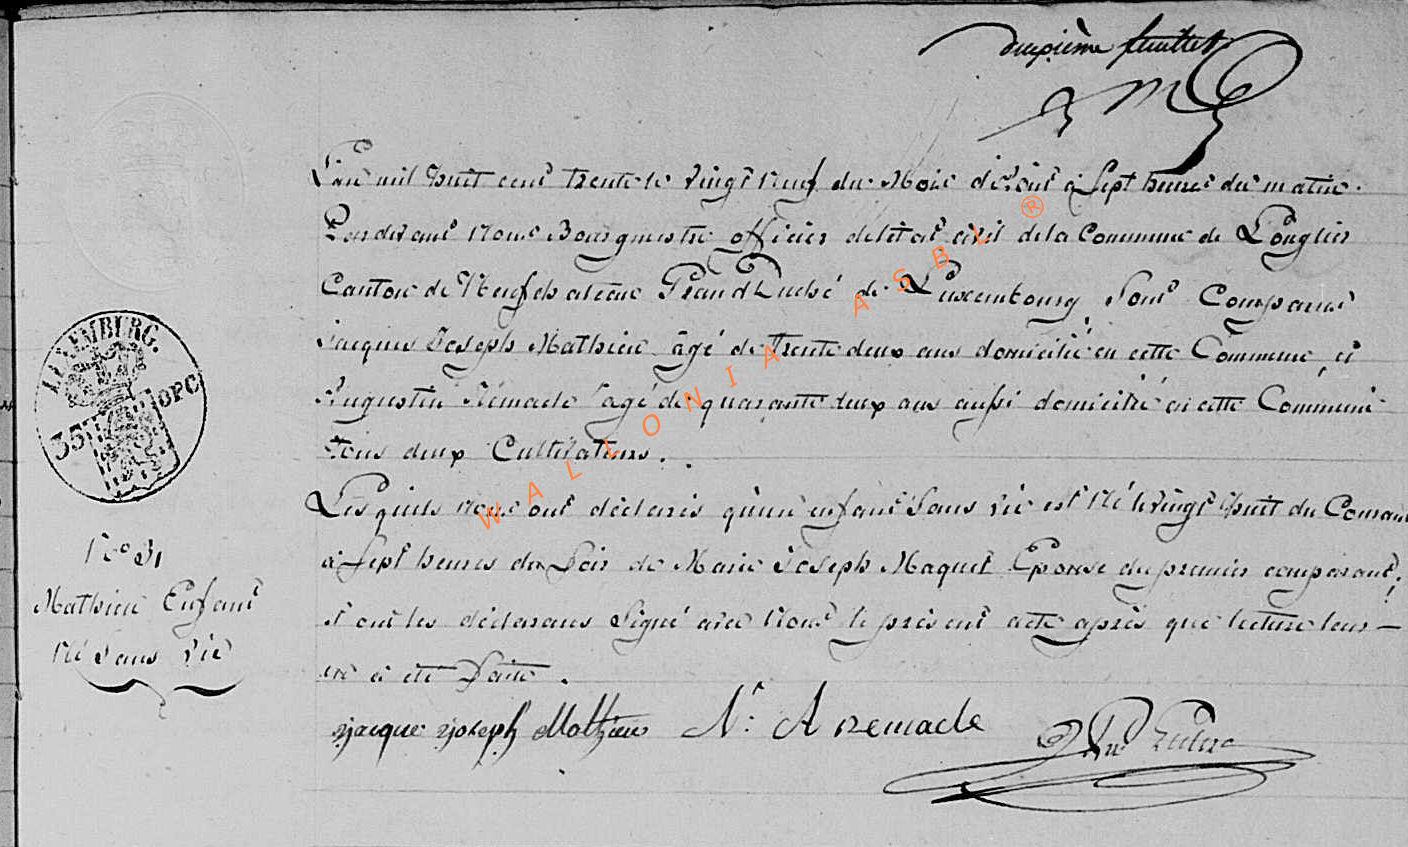 deuxième feuillet
L'an mil huit cent trente le vingt neuf du Mois d'Aout à Sept heures du matin.
Pardevant Nous Bourgmestre officier de l'état civil de la Commune de Longlier
Canton de Neufchateau Grand Duché de Luxembourg Sont Comparus
Jacques Joseph Mathieu âgé de trente deux ans domicilié en cette Commune, et
Augustin Rémacle âgé de quarante deux ans aussi domicilié en cette Commune
tous deux Cultivateurs.
Lesquels Nous ont déclarés qu'un enfant Sans vie est Né le vingt huit du Courant
à Sept heures du Soir de Marie Joseph Maquet Epouse du premier comparant,
et ont les déclarans Signé avec Nous le présent acte après que lecture leur
en a été faite.
LUXEMBURG.
35 OPC
N° 31
Mathieu Enfant
Né Sans vie
jacque joseph Mathieu N. A remacle
WALLONIA ASBL ®